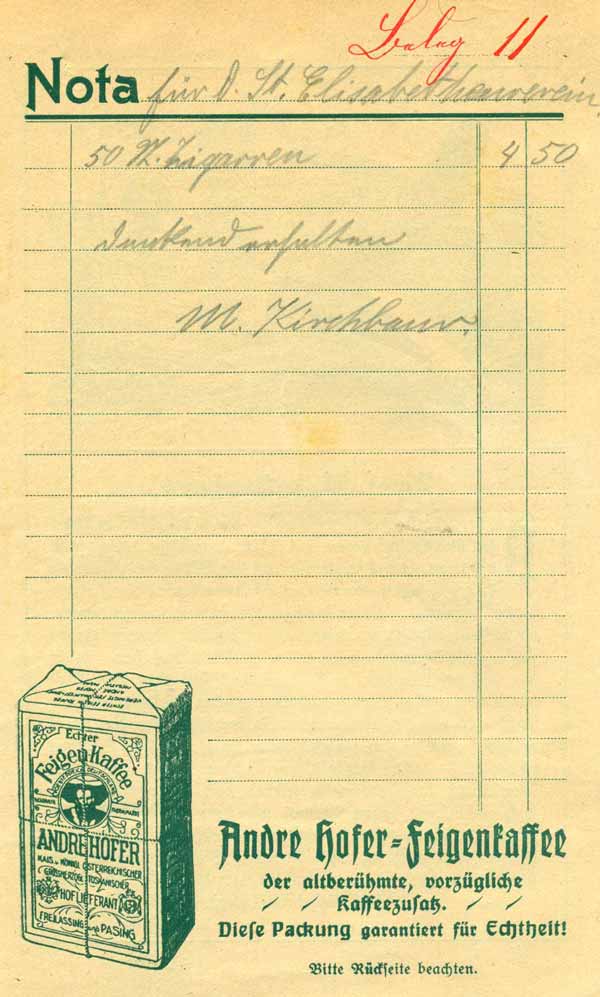 Beleg 11
Nota für d. St. Elisabethenverein
50 St. Zigarren 4 50
dankend erhalten
M. Kirchbaur
Echter
Feigen Kaffee
ANDRE HOFER
KAIS. u. KÖNIGL. ÖSTERREICHISCHER
GROSSHERZOGL. TOSKANISCHER
HOFLIEFERANT
FREILASSING und PASING
Andre Hofer-Feigenkaffee
der altberühmte, vorzügliche
Kaffeezusatz.
Diese Packung garantiert für Echtheit!
Bitte Rückseite beachten.